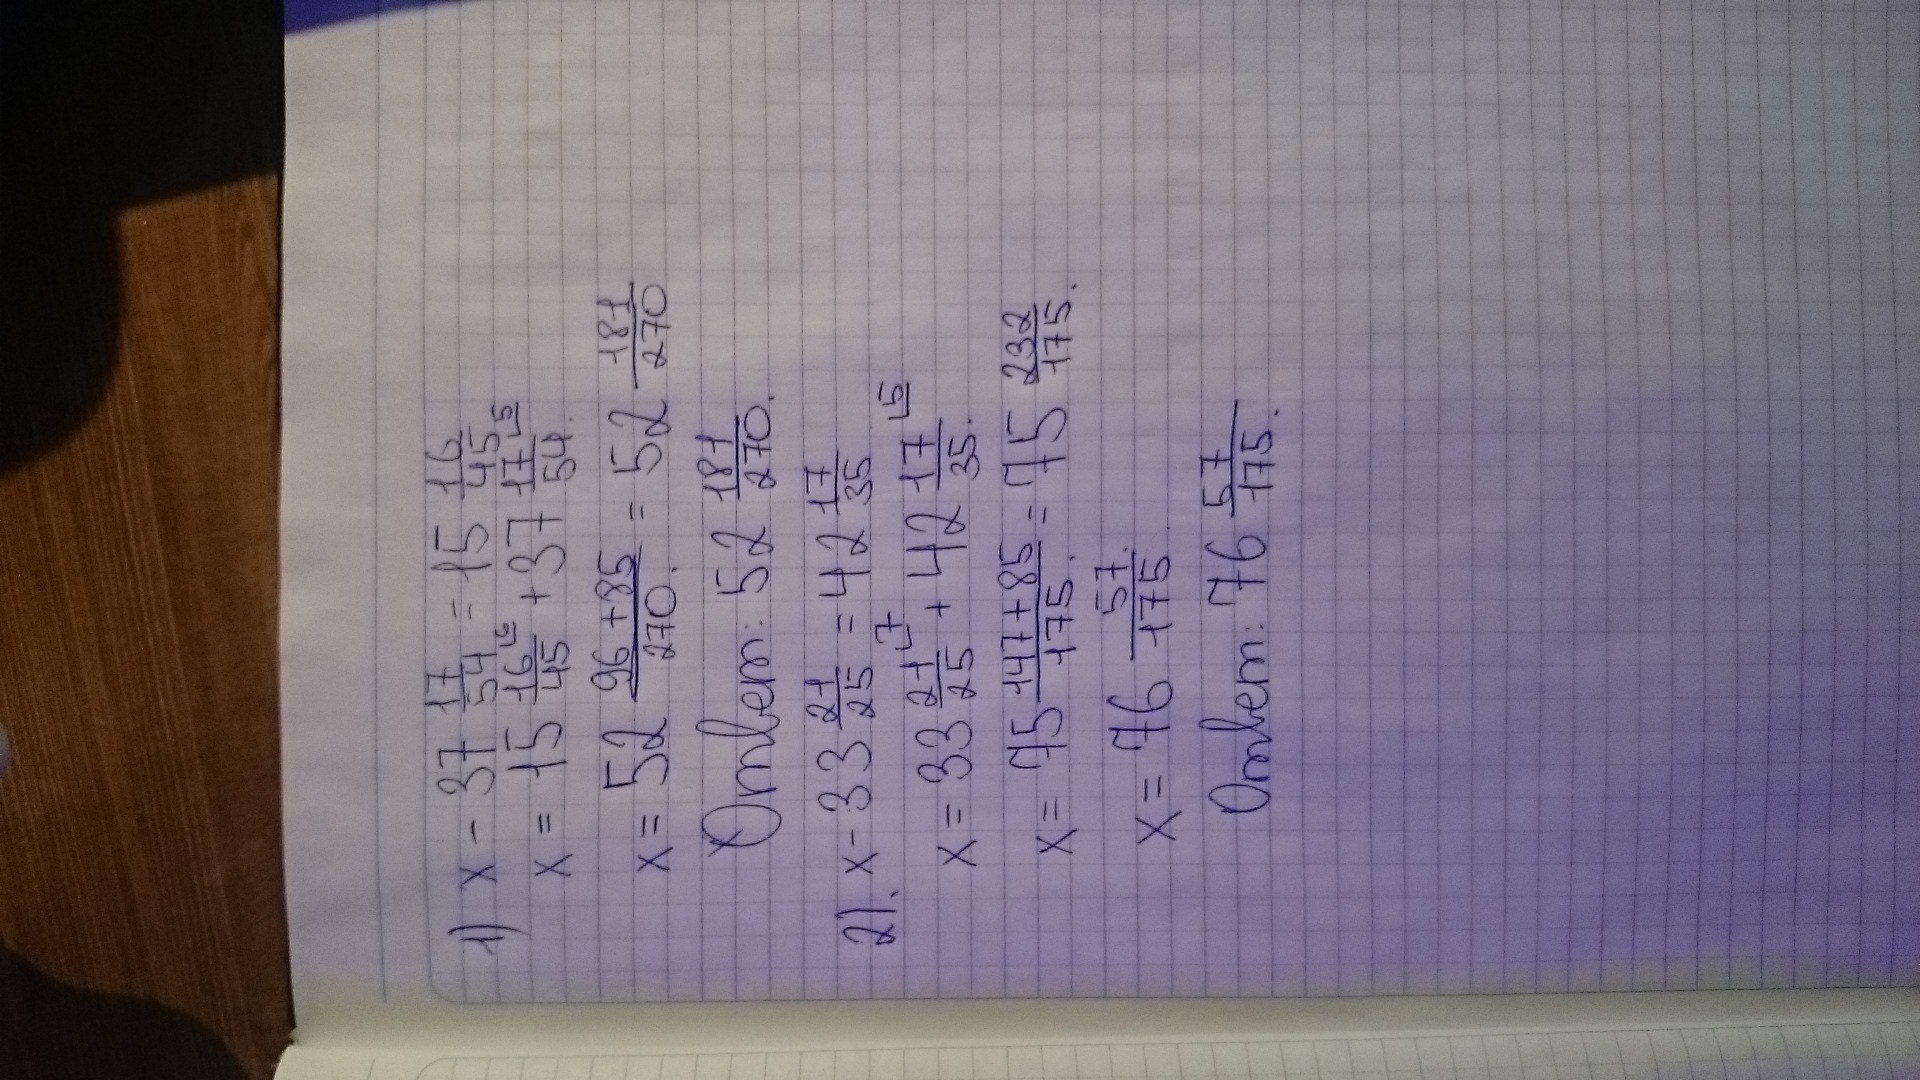 1) x - 37 17/54 = 15 16/45
x = 15 16/45 ⌊6 + 37 17/54 ⌊5.
x = 52 (96+85)/270. = 52 181/270
Ответ: 52 181/270.
2). x - 33 21/25 = 42 17/35
x = 33 21/25 ⌊7 + 42 17/35. ⌊5
x = 75 (147+85)/175. = 75 232/175.
x = 76 57/175.
Ответ: 76 57/175.